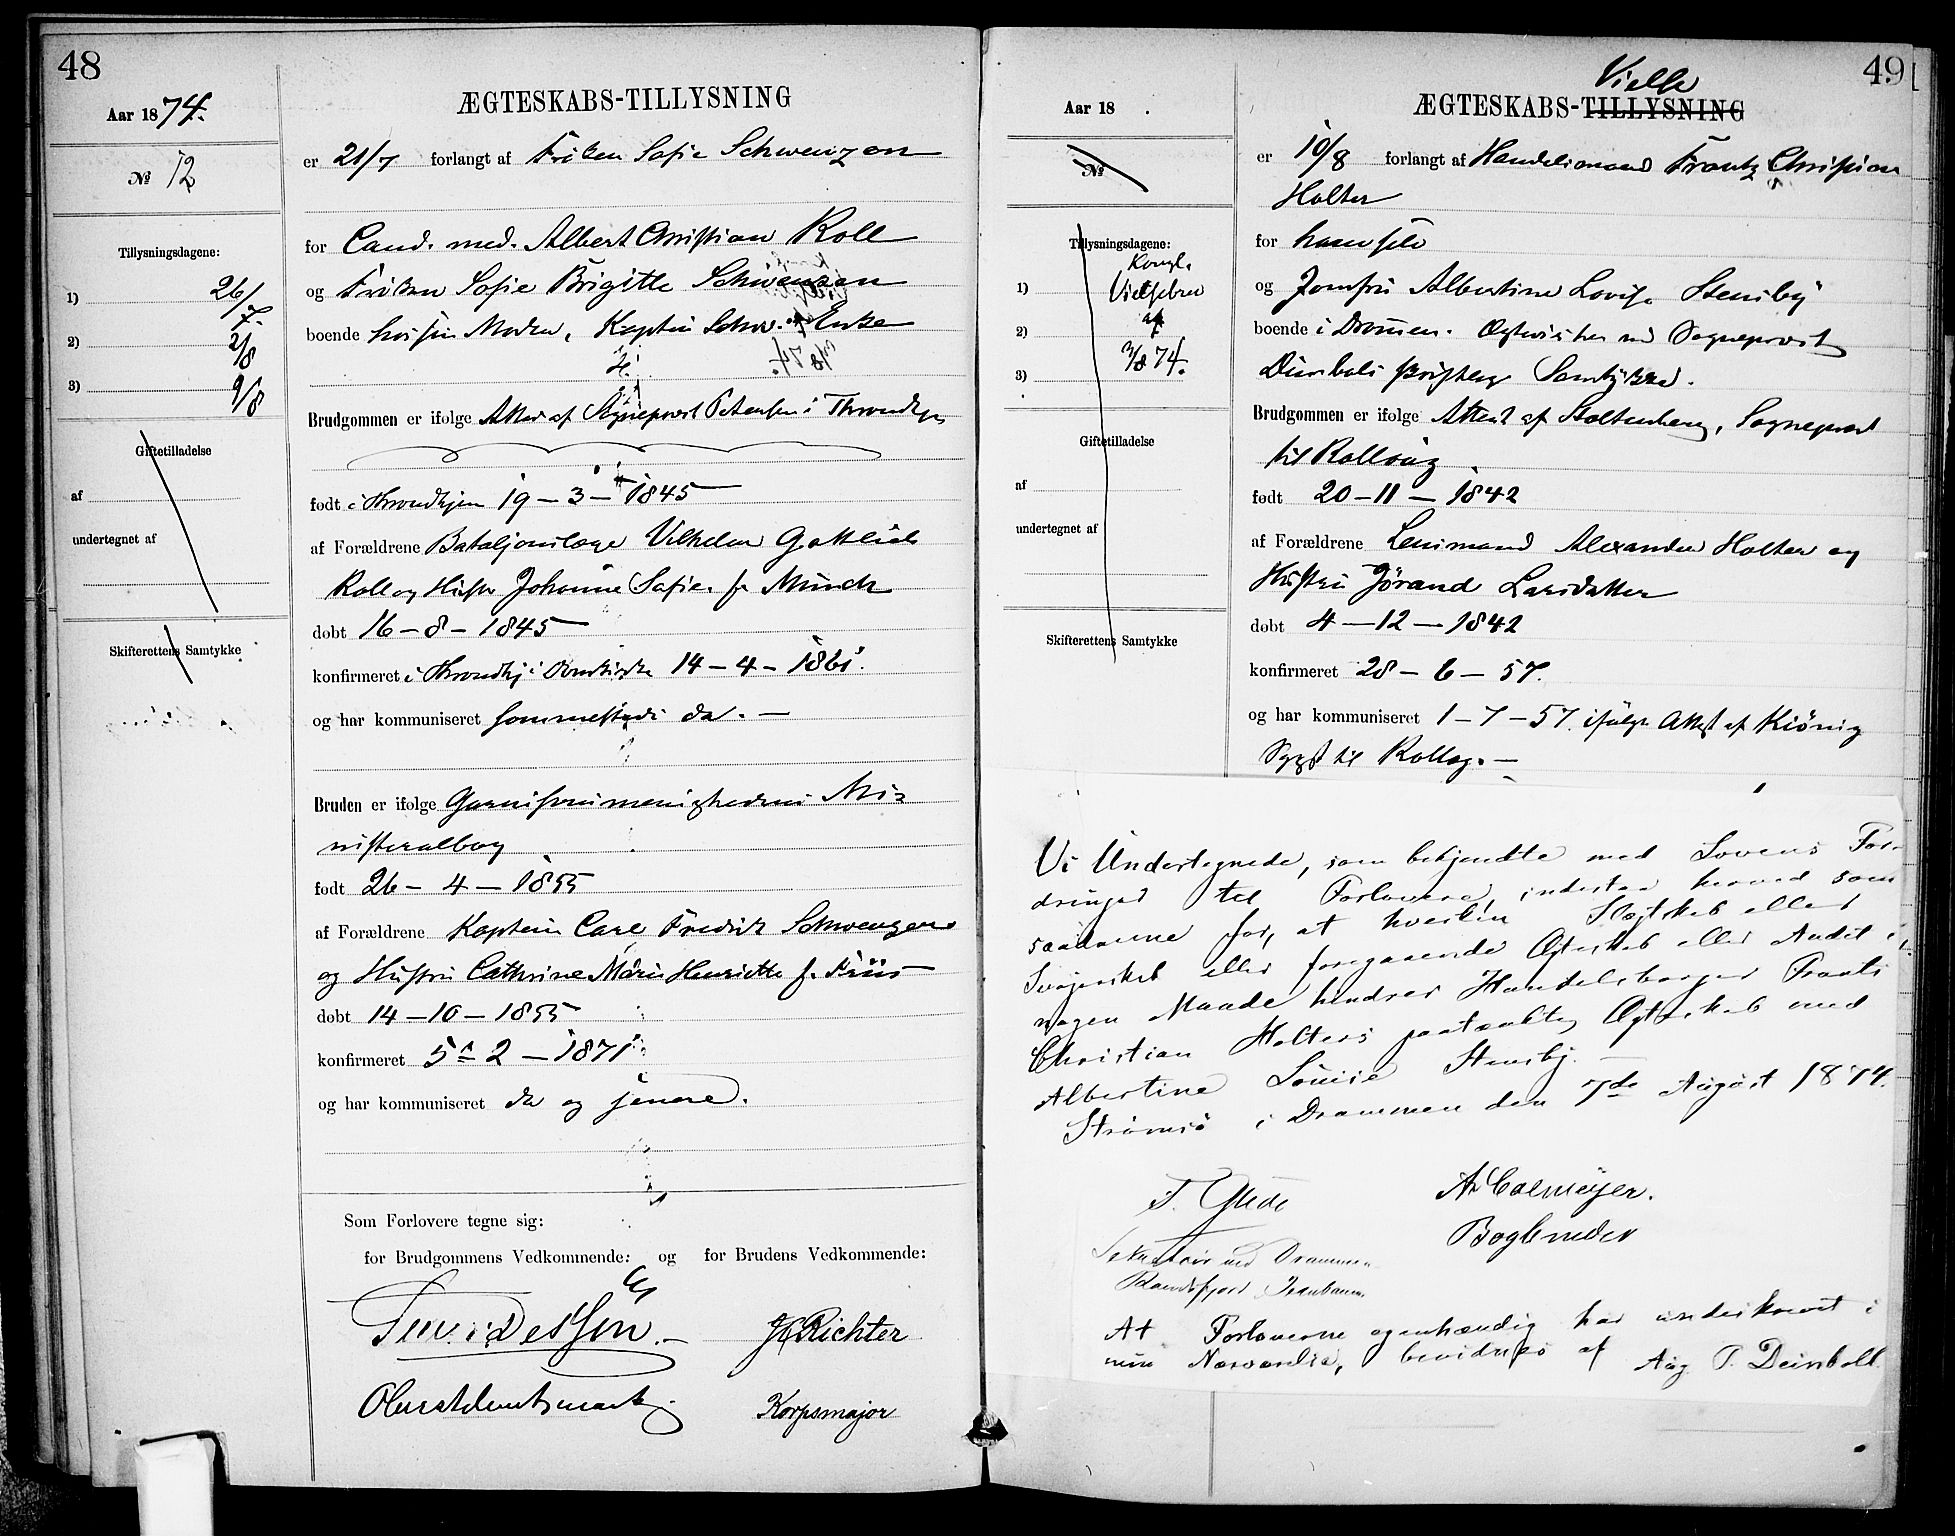 48
Aar 1874.
№ 12
Tillysningsdagene:
1) 26/7.
2) 2/8
3) 9/8
Giftetilladelse
af
undertegnet af
Skifterettens Samtykke
ÆGTESKABS-TILLYSNING
er 21/7 forlangt af Frøken Sofie Schwenzen
for Cand. med. Albert Christian Roll
og Frøken Sofie Brigitte Schwenzen
boende hos sin Moder, Kaptein Schw. Enke
Brudgommen er ifølge Attest af Sogneprest Petersen i Throndhjem
født i Throndhjem 19 - 3 - 1845
af Forældrene Bataljonslæge Vilhelm Gottlieb
Roll og Hustru Johanne Sofie f. Münch
døbt 16 - 8 - 1845
konfirmeret i Throndhj. Domkirke 14 - 4 - 1861.
og har kommuniseret sammesteds da. —
Bruden er ifølge Garnisonsmenighedens Mi-
nisterialbog
født 26 - 4 - 1855
af Forældrene Kaptein Carl Fredrik Schwenzen
og Hustru Cathrine Marie Henriette f. Friis
døbt 14 - 10 - 1855
konfirmeret 5 - 2 - 1871
og har kommuniseret da og senere.
Som Forlovere tegne sig:
for Brudgommens Vedkommende: og for Brudens Vedkommende:
JC Richter
Oberstløitnant
Korpsmajor
49
Aar 18 .
№
Tillysningsdagene:
Kongl.
1) Vielsebrev
2) af
3) 3/8 74.
Giftetilladelse
af
undertegnet af
Skifterettens Samtykke
Vielse
ÆGTESKABS-TILLYSNING
er 10/8 forlangt af Handelsmand Frantz Christian
Holter
for ham selv
og Jomfru Albertine Lovise Stensby
boende i Drammen. Egtevies her med Sogneprest
Deinbolls skriftlige Samtykke.
Brudgommen er ifølge Attest af Stoltenberg, Sogneprest
til Rollaug
født 20 - 11 - 1842
af Forældrene Lensmand Alexander Holter og
Hustru Jørand Larsdatter
døbt 4 - 12 - 1842
konfirmeret 28 - 6 - 57.
og har kommuniseret 1 - 7 - 57. ifølge Attest af Kiønig
Sgpst til Rollag. —
Vi Undertegnede, som bekjendte med Lovens For-
dringer til Forlovere, indestaa herved som
saadanne for, at hverken Slægtskab eller
Svogerskab eller foregaaende Ægteskab eller Andet i
nogen Maade hindrer Handelsborger Frants
Christian Holters paatænkte Ægteskab med
Albertine Louise Stensby.
Strømsø i Drammen den 7de August 1874.
T. Glede
A. Calmeyer.
Sekretair ved Drammen-
Bogbinder
Randsfjord Jernbanen.
At Forloverne egenhændig har underskrevet i
min Nærværelse, bevidnes af Aug. P. Deinboll.